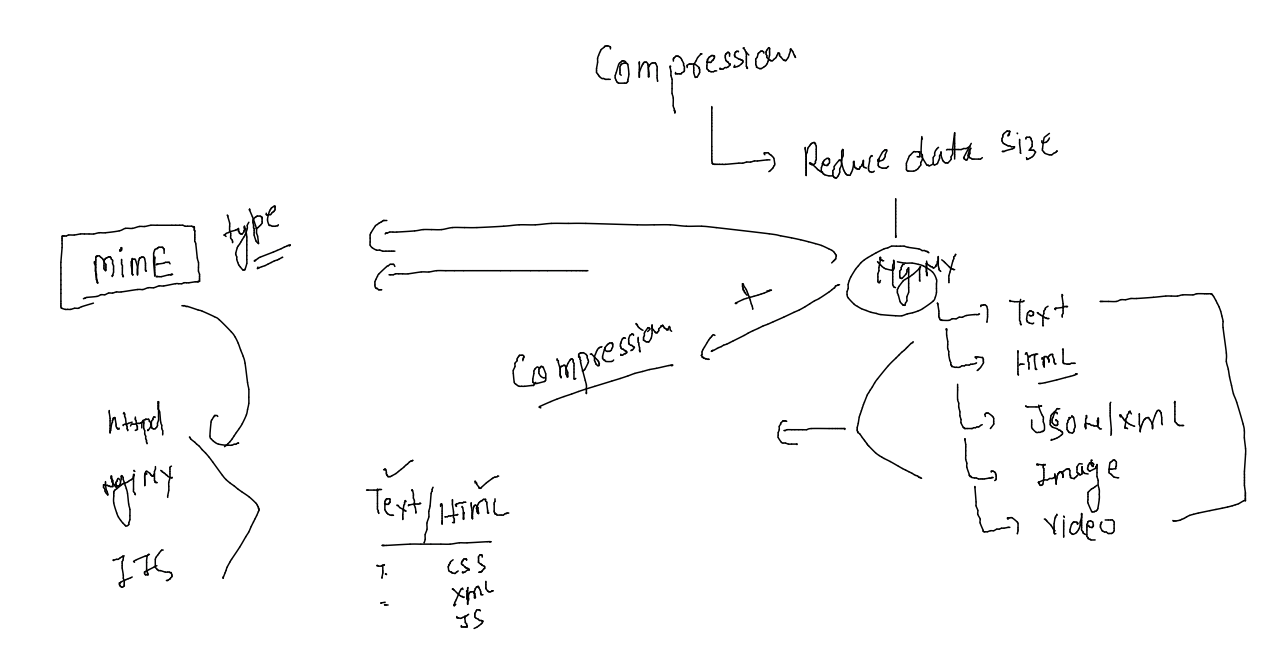 Compression
Reduce data size
type
mimE
NgiNX
Text
HTML
JSON/XML
Image
Video
Compression
httpd
NgiNX
IIS
Text/HTML
CSS
XML
JS